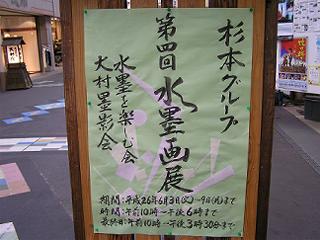 杉本グループ
第四回水墨画展
水墨を楽しむ会
大村墨彩会
期間:平成26年6月3日(火)~9日(月)まで
時間:午前10時~午後6時まで
最終日:午前10時~午後3時30分まで